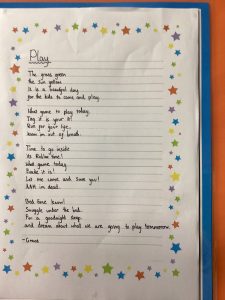 Play
The grass green
the sun yellow
It is a beautiful day
for the kids to come and play.
What game to play today.
Tag it is your it!
Run for your life.
keem im out of breath.
Time to go inside
Its Roblox time!
What game today.
Bake it is!
Let me come and save you!
AHH im dead.
Bed time keem!
Snuggle under the bed.
For a goodnight sleep.
and dream about what we are going to play tomorrow.